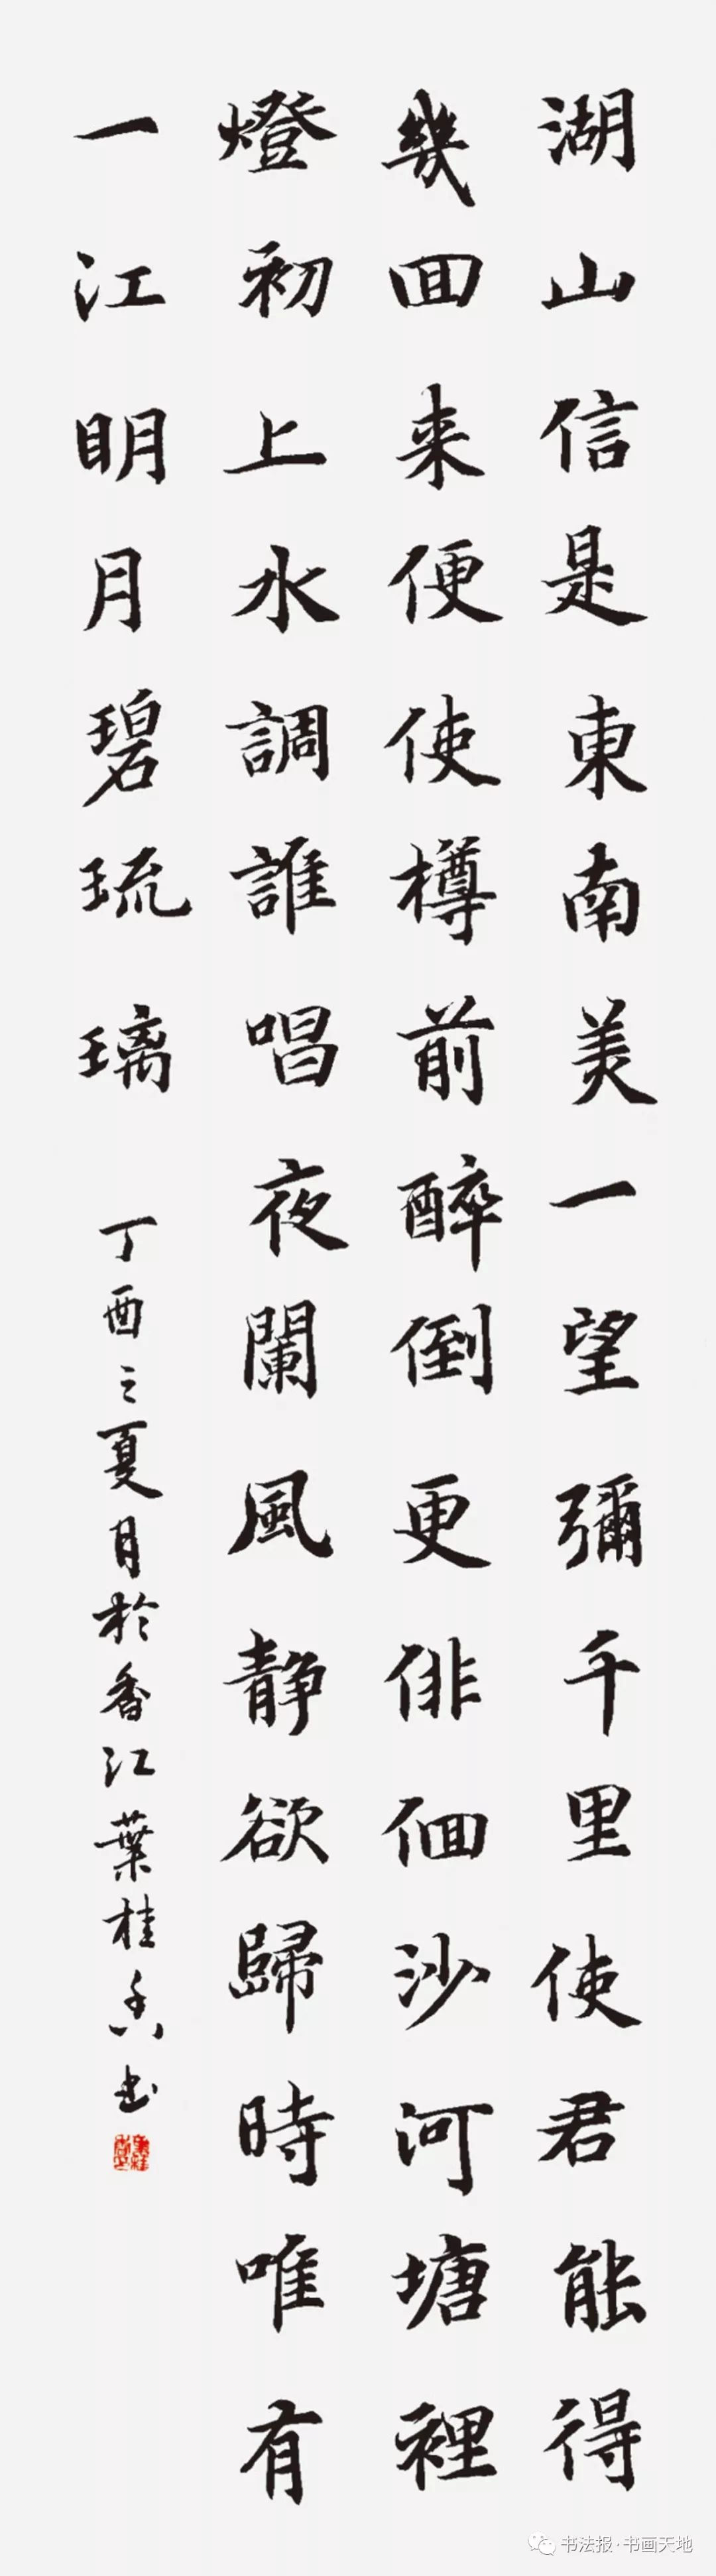 湖山信是東南美一望彌千里使君能得
幾回来便使樽前醉倒更俳佪沙河塘裡
燈初上水調誰唱夜闌風静欲歸時唯有
一江明月碧琉璃
丁酉之夏月於香江葉桂香书
书法报·书画天地